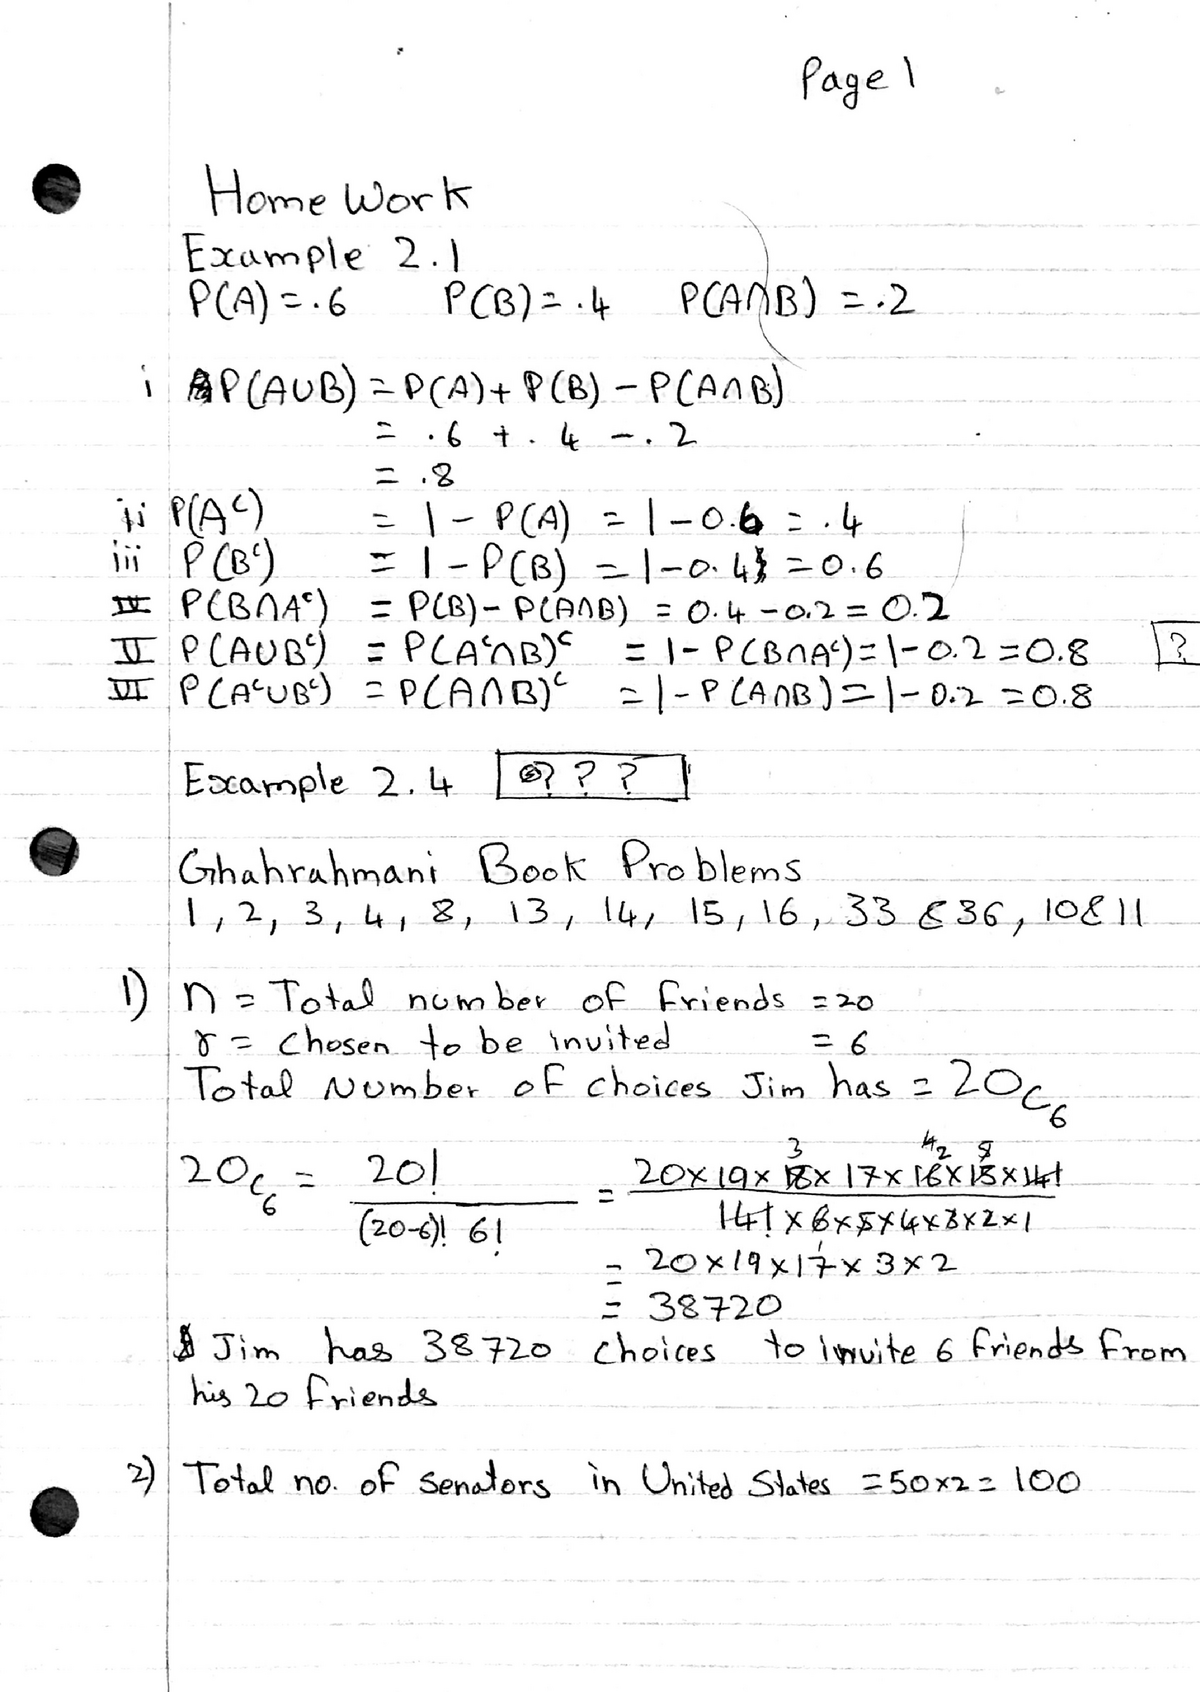 Page 1
Home Work
Example 2.1
P(A) = .6 P(B) = .4 P(A∩B) = .2
i P(A∪B) = P(A) + P(B) - P(A∩B)
= .6 + .4 - .2
= .8
ii P(Aᶜ) = 1 - P(A) = 1 - 0.6 = .4
iii P(Bᶜ) = 1 - P(B) = 1 - 0.4 = 0.6
IV P(B∩Aᶜ) = P(B) - P(A∩B) = 0.4 - 0.2 = 0.2
V P(A∪Bᶜ) = P(Aᶜ∩B)ᶜ = 1 - P(B∩Aᶜ) = 1 - 0.2 = 0.8 ?
VI P(Aᶜ∪Bᶜ) = P(A∩B)ᶜ = 1 - P(A∩B) = 1 - 0.2 = 0.8
Example 2.4 ? ? ?
Ghahrahmani Book Problems
1, 2, 3, 4, 8, 13, 14, 15, 16, 33 & 36, 10 & 11
1) n = Total number of friends = 20
r = chosen to be invited = 6
Total Number of choices Jim has = 20C₆
3 4 2
20C₆ = 20! / (20-6)! 6! = 20 × 19 × 18 × 17 × 16 × 15 × 14! / 14! × 6 × 5 × 4 × 3 × 2 × 1
= 20 × 19 × 17 × 3 × 2
= 38720
Jim has 38720 choices to invite 6 friends from
his 20 friends
2) Total no. of senators in United States = 50 × 2 = 100